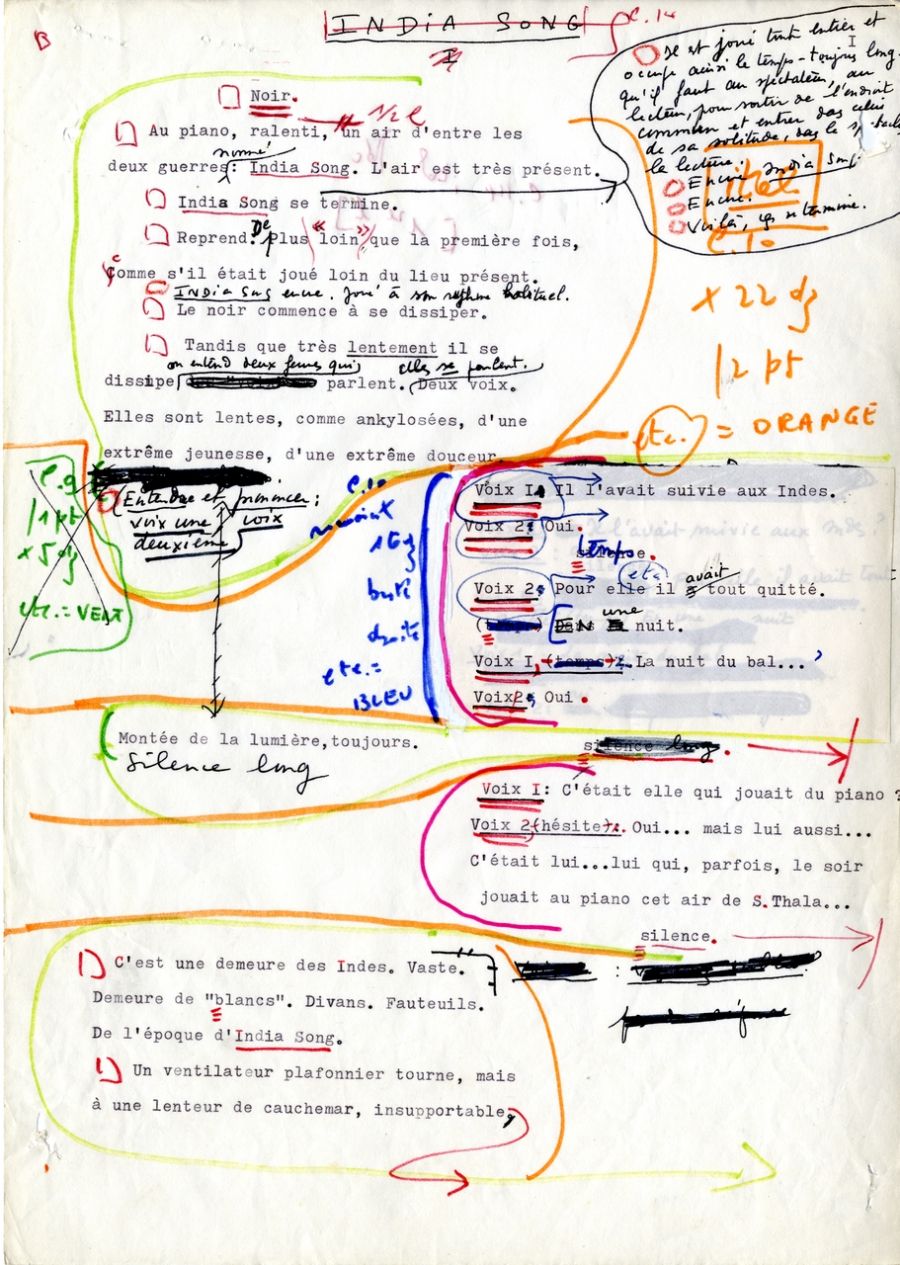 B
INDIA SONG
C.14
I
I
Il est joué tout entier et
occupe ainsi le temps - toujours long -
qu'il faut au spectateur, au
lecteur, pour sortir de l'endroit
commun et entrer dans celui
de sa solitude, dans le spectacle
la lecture.
Encore India Song
Encore.
Voilà, ça se termine.
C.10
Noir.
1/2 l
Au piano, ralenti, un air d'entre les
nommé
deux guerres: India Song. L'air est très présent.
India Song se termine.
Reprend. De plus "loin" que la première fois,
comme s'il était joué loin du lieu présent.
INDIA Song encore. Joué à son rythme habituel.
Le noir commence à se dissiper.
Tandis que très lentement il se
on entend deux femmes qui elles se parlent.
dissipe parlent. Deux voix.
Elles sont lentes, comme ankylosées, d'une
extrême jeunesse, d'une extrême douceur.
x 22 dz
12 pt
etc. = ORANGE
C.9
11 pt
x 5 dz
etc. = VERT
Entendre et prononcer :
voix une voix
deuxième
C.10
romain x
dz
droite
etc. =
BLEU
Voix I. Il l'avait suivie aux Indes.
Voix 2: Oui.
temps
silence.
etc. avait
Voix 2: Pour elle il tout quitté.
une
(temps) EN nuit.
Voix I, (temps): La nuit du bal...
Voix2: Oui.
Montée de la lumière,toujours.
Silence long
silence long.
Voix I: C'était elle qui jouait du piano ?
Voix 2(hésite): Oui... mais lui aussi...
C'était lui...lui qui, parfois, le soir
jouait au piano cet air de S.Thala...
silence.
C'est une demeure des Indes. Vaste.
Demeure de "blancs". Divans. Fauteuils.
De l'époque d'India Song.
Un ventilateur plafonnier tourne, mais
à une lenteur de cauchemar, insupportable,